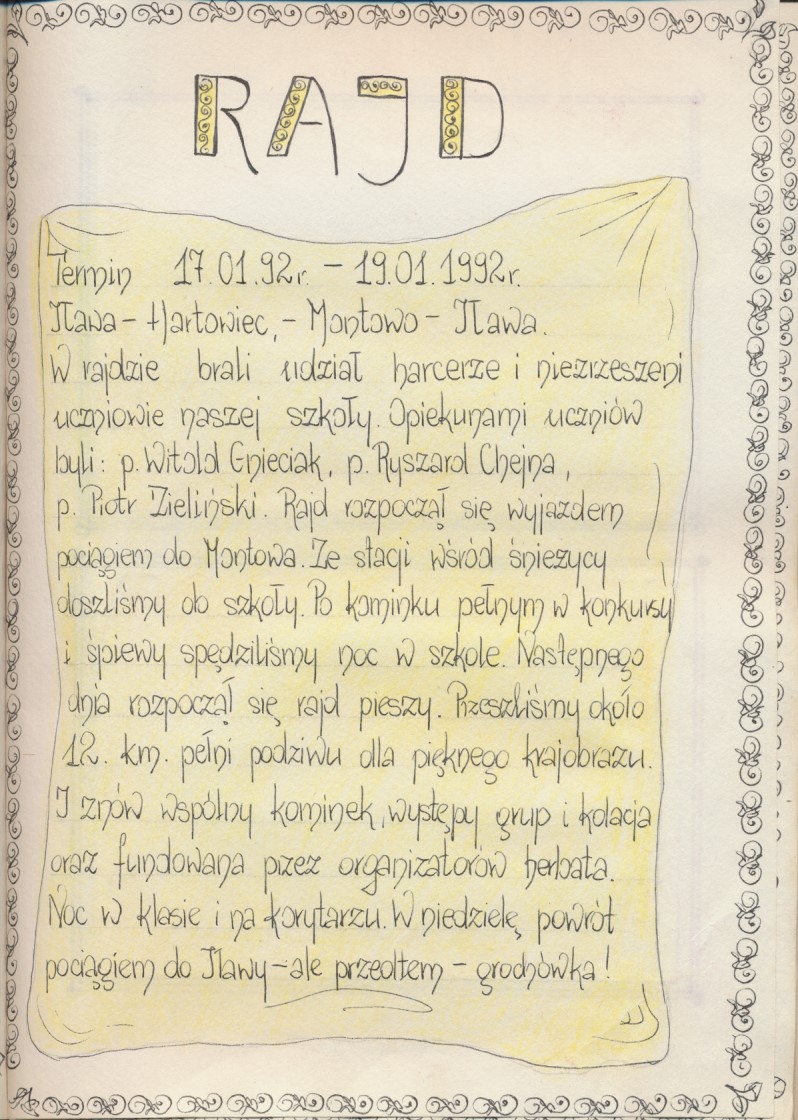 RAJD
Termin 17.01.92r. – 19.01.1992r.
Iława – Hartowiec, – Montowo – Iława.
W rajdzie brali udział harcerze i niezrzeszeni
uczniowie naszej szkoły. Opiekunami uczniów
byli: p. Witold Gnieciak, p. Ryszard Chejna,
p. Piotr Zieliński. Rajd rozpoczął się wyjazdem
pociągiem do Montowa. Ze stacji wśród śnieżycy
doszliśmy do szkoły. Po kominku pełnym w konkursy
i śpiewy spędziliśmy noc w szkole. Następnego
dnia rozpoczął się rajd pieszy. Przeszliśmy około
12. km. pełni podziwu dla pięknego krajobrazu.
I znów wspólny kominek, występy grup i kolacja
oraz fundowana przez organizatorów herbata.
Noc w klasie i na korytarzu. W niedzielę powrót
pociągiem do Iławy – ale przedtem – grochówka!